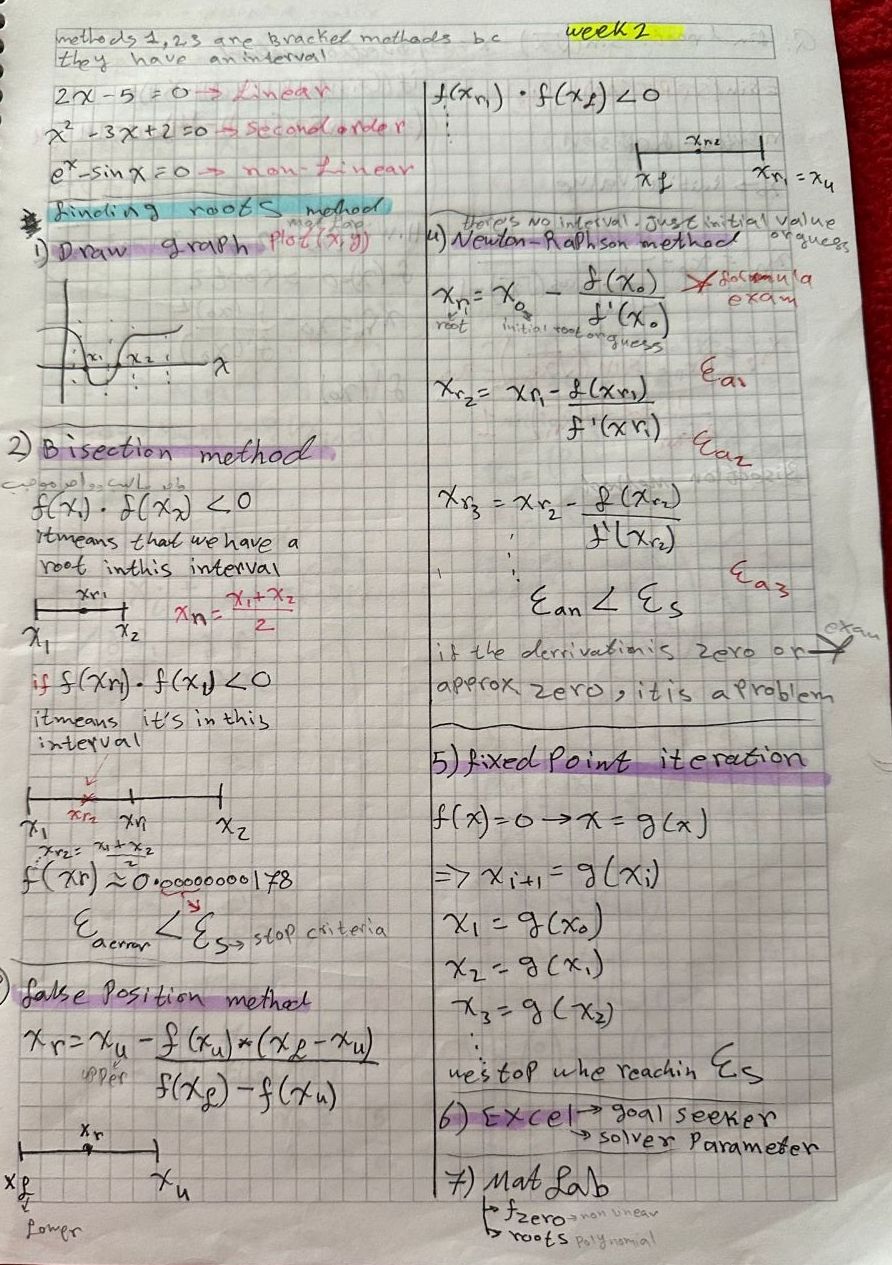 week 2
methods 1,2,3 are Bracket methods b.c
they have an interval
2x - 5 = 0 → Linear
x² - 3x + 2 = 0 → second order
eˣ - sin x = 0 → non-Linear
* finding roots method
1) Draw graph Plot(x,y)
x₁ x₂ x
2) Bisection method
f(x₁) · f(x₂) < 0
itmeans that we have a
root inthis interval
xr₁
x₁ x₂
xr₁ = (x₁+x₂)/2
if f(xr₁) · f(x₁) < 0
itmeans it's in this
interval
x₁ xr₂ xr₁ x₂
xr₂ = (x₁+x₂)/2
f(xr) ≈ 0.00000000178
Ɛa error < Ɛs → stop criteria
false Position method
xr = xu - f(xu)*(xℓ - xu) / f(xℓ) - f(xu)
upper
xr
xℓ xu
Lower
f(xr₁) · f(xℓ) < 0
xr₂
xℓ xr₁ = xu
there's No interval. Just initial value
or guess
4) Newton-Raphson method
xr₁ = x₀ - f(x₀)/f'(x₀) * formula
exam
root initial root or guess
xr₂ = xr₁ - f(xr₁)/f'(xr₁) Ɛa₁
Ɛa₂
xr₃ = xr₂ - f(xr₂)/f'(xr₂)
Ɛa₃
Ɛan < Ɛs
exam
if the derrivation is zero or
approx zero, it is a problem
5) fixed Point iteration
f(x) = 0 → x = g(x)
=> xᵢ₊₁ = g(xᵢ)
x₁ = g(x₀)
x₂ = g(x₁)
x₃ = g(x₂)
we stop whe reachin Ɛs
6) Excel → goal seeker
→ solver Parameter
7) Mat Lab
→ fzero → non linear
→ roots polynomial